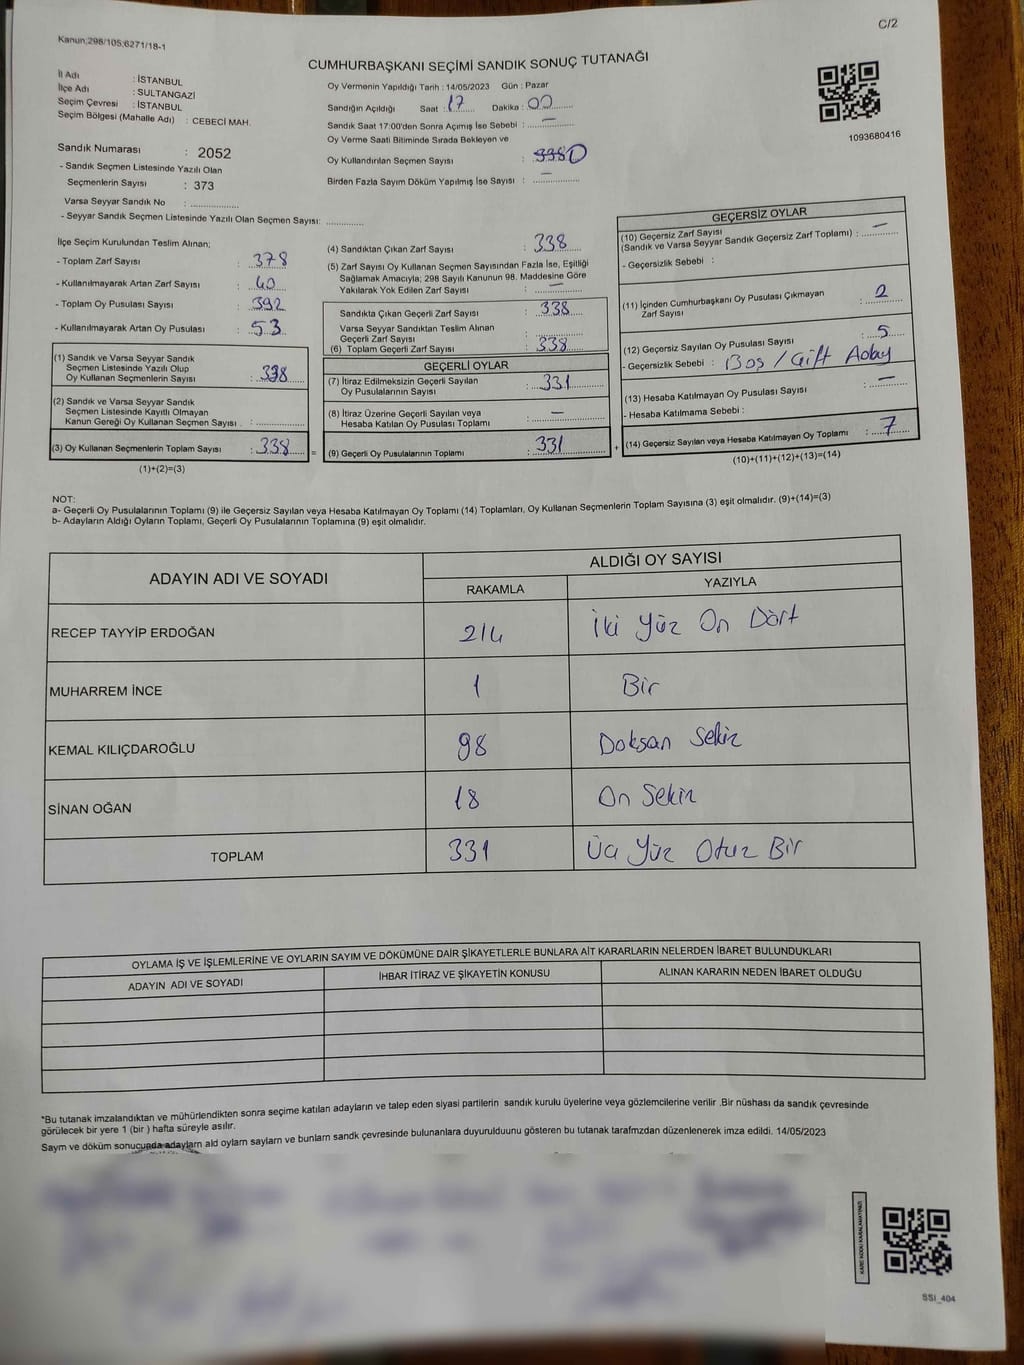 C/2
Kanun;298/105;6271/18-1
CUMHURBAŞKANI SEÇİMİ SANDIK SONUÇ TUTANAĞI
İl Adı : İSTANBUL
İlçe Adı : SULTANGAZİ
Seçim Çevresi : İSTANBUL
Seçim Bölgesi (Mahalle Adı) : CEBECİ MAH.
Oy Vermenin Yapıldığı Tarih : 14/05/2023 Gün : Pazar
Sandığın Açıldığı Saat : 17 Dakika : 00
Sandık Saat 17:00'den Sonra Açımış İse Sebebi : —
Oy Verme Saati Bitiminde Sırada Bekleyen ve
Oy Kullandırılan Seçmen Sayısı : 338 0
Birden Fazla Sayım Döküm Yapılmış İse Sayısı : —
1093680416
Sandık Numarası : 2052
- Sandık Seçmen Listesinde Yazılı Olan
Seçmenlerin Sayısı : 373
Varsa Seyyar Sandık No :
- Seyyar Sandık Seçmen Listesinde Yazılı Olan Seçmen Sayısı:
İlçe Seçim Kurulundan Teslim Alınan;
- Toplam Zarf Sayısı : 378
- Kullanılmayarak Artan Zarf Sayısı : 40
- Toplam Oy Pusulası Sayısı : 392
- Kullanılmayarak Artan Oy Pusulası : 53
(1) Sandık ve Varsa Seyyar Sandık
Seçmen Listesinde Yazılı Olup
Oy Kullanan Seçmenlerin Sayısı : 338
(2) Sandık ve Varsa Seyyar Sandık
Seçmen Listesinde Kayıtlı Olmayan
Kanun Gereği Oy Kullanan Seçmen Sayısı :
(3) Oy Kullanan Seçmenlerin Toplam Sayısı : 338 =
(1)+(2)=(3)
(4) Sandıktan Çıkan Zarf Sayısı : 338
(5) Zarf Sayısı Oy Kullanan Seçmen Sayısından Fazla İse, Eşitliği
Sağlamak Amacıyla; 298 Sayılı Kanunun 98. Maddesine Göre
Yakılarak Yok Edilen Zarf Sayısı : —
Sandıkta Çıkan Geçerli Zarf Sayısı : 338
Varsa Seyyar Sandıktan Teslim Alınan
Geçerli Zarf Sayısı :
(6) Toplam Geçerli Zarf Sayısı : 338
GEÇERLİ OYLAR
(7) İtiraz Edilmeksizin Geçerli Sayılan
Oy Pusulalarının Sayısı : 331
(8) İtiraz Üzerine Geçerli Sayılan veya
Hesaba Katılan Oy Pusulası Toplamı : —
(9) Geçerli Oy Pusulalarının Toplamı : 331 +
GEÇERSİZ OYLAR
(10) Geçersiz Zarf Sayısı
(Sandık ve Varsa Seyyar Sandık Geçersiz Zarf Toplamı) : —
- Geçersizlik Sebebi :
(11) İçinden Cumhurbaşkanı Oy Pusulası Çıkmayan
Zarf Sayısı : 2
(12) Geçersiz Sayılan Oy Pusulası Sayısı : 5
- Geçersizlik Sebebi : Boş / Çift Aday
(13) Hesaba Katılmayan Oy Pusulası Sayısı : —
- Hesaba Katılmama Sebebi :
(14) Geçersiz Sayılan veya Hesaba Katılmayan Oy Toplamı : 7
(10)+(11)+(12)+(13)=(14)
NOT:
a- Geçerli Oy Pusulalarının Toplamı (9) ile Geçersiz Sayılan veya Hesaba Katılmayan Oy Toplamı (14) Toplamları, Oy Kullanan Seçmenlerin Toplam Sayısına (3) eşit olmalıdır. (9)+(14)=(3)
b- Adayların Aldığı Oyların Toplamı, Geçerli Oy Pusulalarının Toplamına (9) eşit olmalıdır.
ADAYIN ADI VE SOYADI
ALDIĞI OY SAYISI
RAKAMLA YAZIYLA
RECEP TAYYİP ERDOĞAN 214 İki Yüz On Dört
MUHARREM İNCE 1 Bir
KEMAL KILIÇDAROĞLU 98 Doksan Sekiz
SİNAN OĞAN 18 On Sekiz
TOPLAM 331 Üç Yüz Otuz Bir
OYLAMA İŞ VE İŞLEMLERİNE VE OYLARIN SAYIM VE DÖKÜMÜNE DAİR ŞİKAYETLERLE BUNLARA AİT KARARLARIN NELERDEN İBARET BULUNDUKLARI
ADAYIN ADI VE SOYADI İHBAR İTİRAZ VE ŞİKAYETİN KONUSU ALINAN KARARIN NEDEN İBARET OLDUĞU
*Bu tutanak imzalandıktan ve mühürlendikten sonra seçime katılan adayların ve talep eden siyasi partilerin sandık kurulu üyelerine veya gözlemcilerine verilir .Bir nüshası da sandık çevresinde
görülecek bir yere 1 (bir ) hafta süreyle asılır.
Saym ve döküm sonucunda adaylarn ald oylarn saylarn ve bunlarn sandk çevresinde bulunanlara duyurulduunu gösteren bu tutanak tarafmzdan düzenlenerek imza edildi. 14/05/2023
KARE KODU KARALAMAYINIZ!
SSI_404